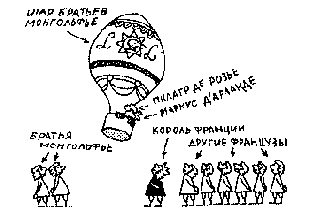 ШАР БРАТЬЕВ
МОНГОЛЬФЬЕ
ПИЛАТР ДЕ РОЗЬЕ
МАРКИЗ Д'АРЛАНДЕ
БРАТЬЯ
МОНГОЛЬФЬЕ
КОРОЛЬ ФРАНЦИИ
ДРУГИЕ ФРАНЦУЗЫ